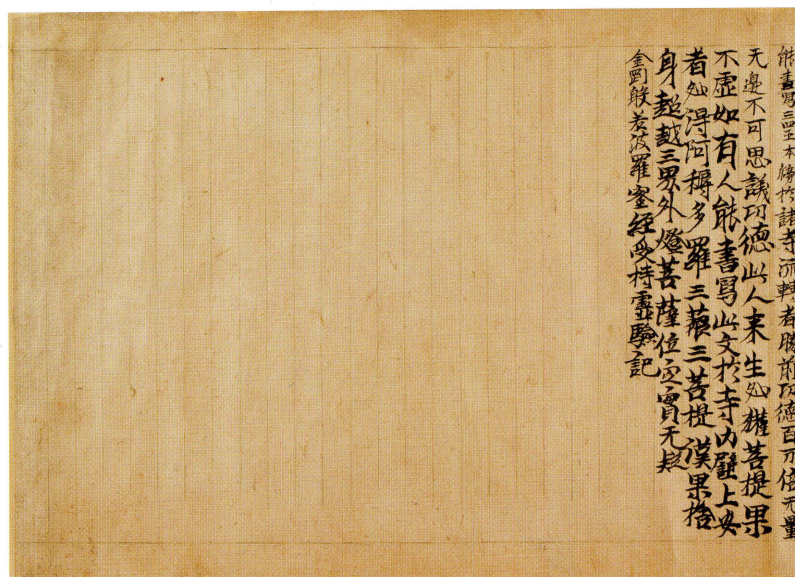 能書寫三四五本牓扵諸寺流轉者勝前功德百万倍无量
无邊不可思議功德此人来生必獲菩提果
不虛如有人能書寫此文扵寺內壁上安
者必得阿耨多羅三藐三菩提漢果捨
身超越三界外燈菩薩位定實无疑
金罰般若波羅蜜經受持靈驗記